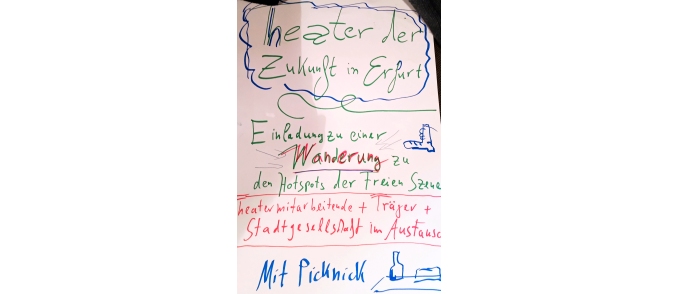 Theater der
Zukunft in Erfurt
Einladung zu einer
Wanderung zu
den Hotspots der Freien Szene
heatermitarbeitende + Träger +
Stadtgesellschaft im Austausc
Mit Picknick